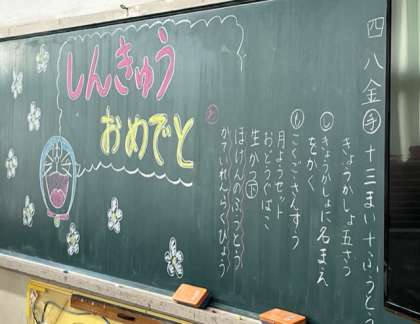 しんきゅう
おめでと
四八金㋢十三まい十ふうとう
きょうかしょ五さつ
㋛きょうかしょに名まえ
をかく
㋲こくごさんすう
月ようセット
おどうぐばこ
生かつ㊦
ほけんのふうとう
かていれんらくひょう